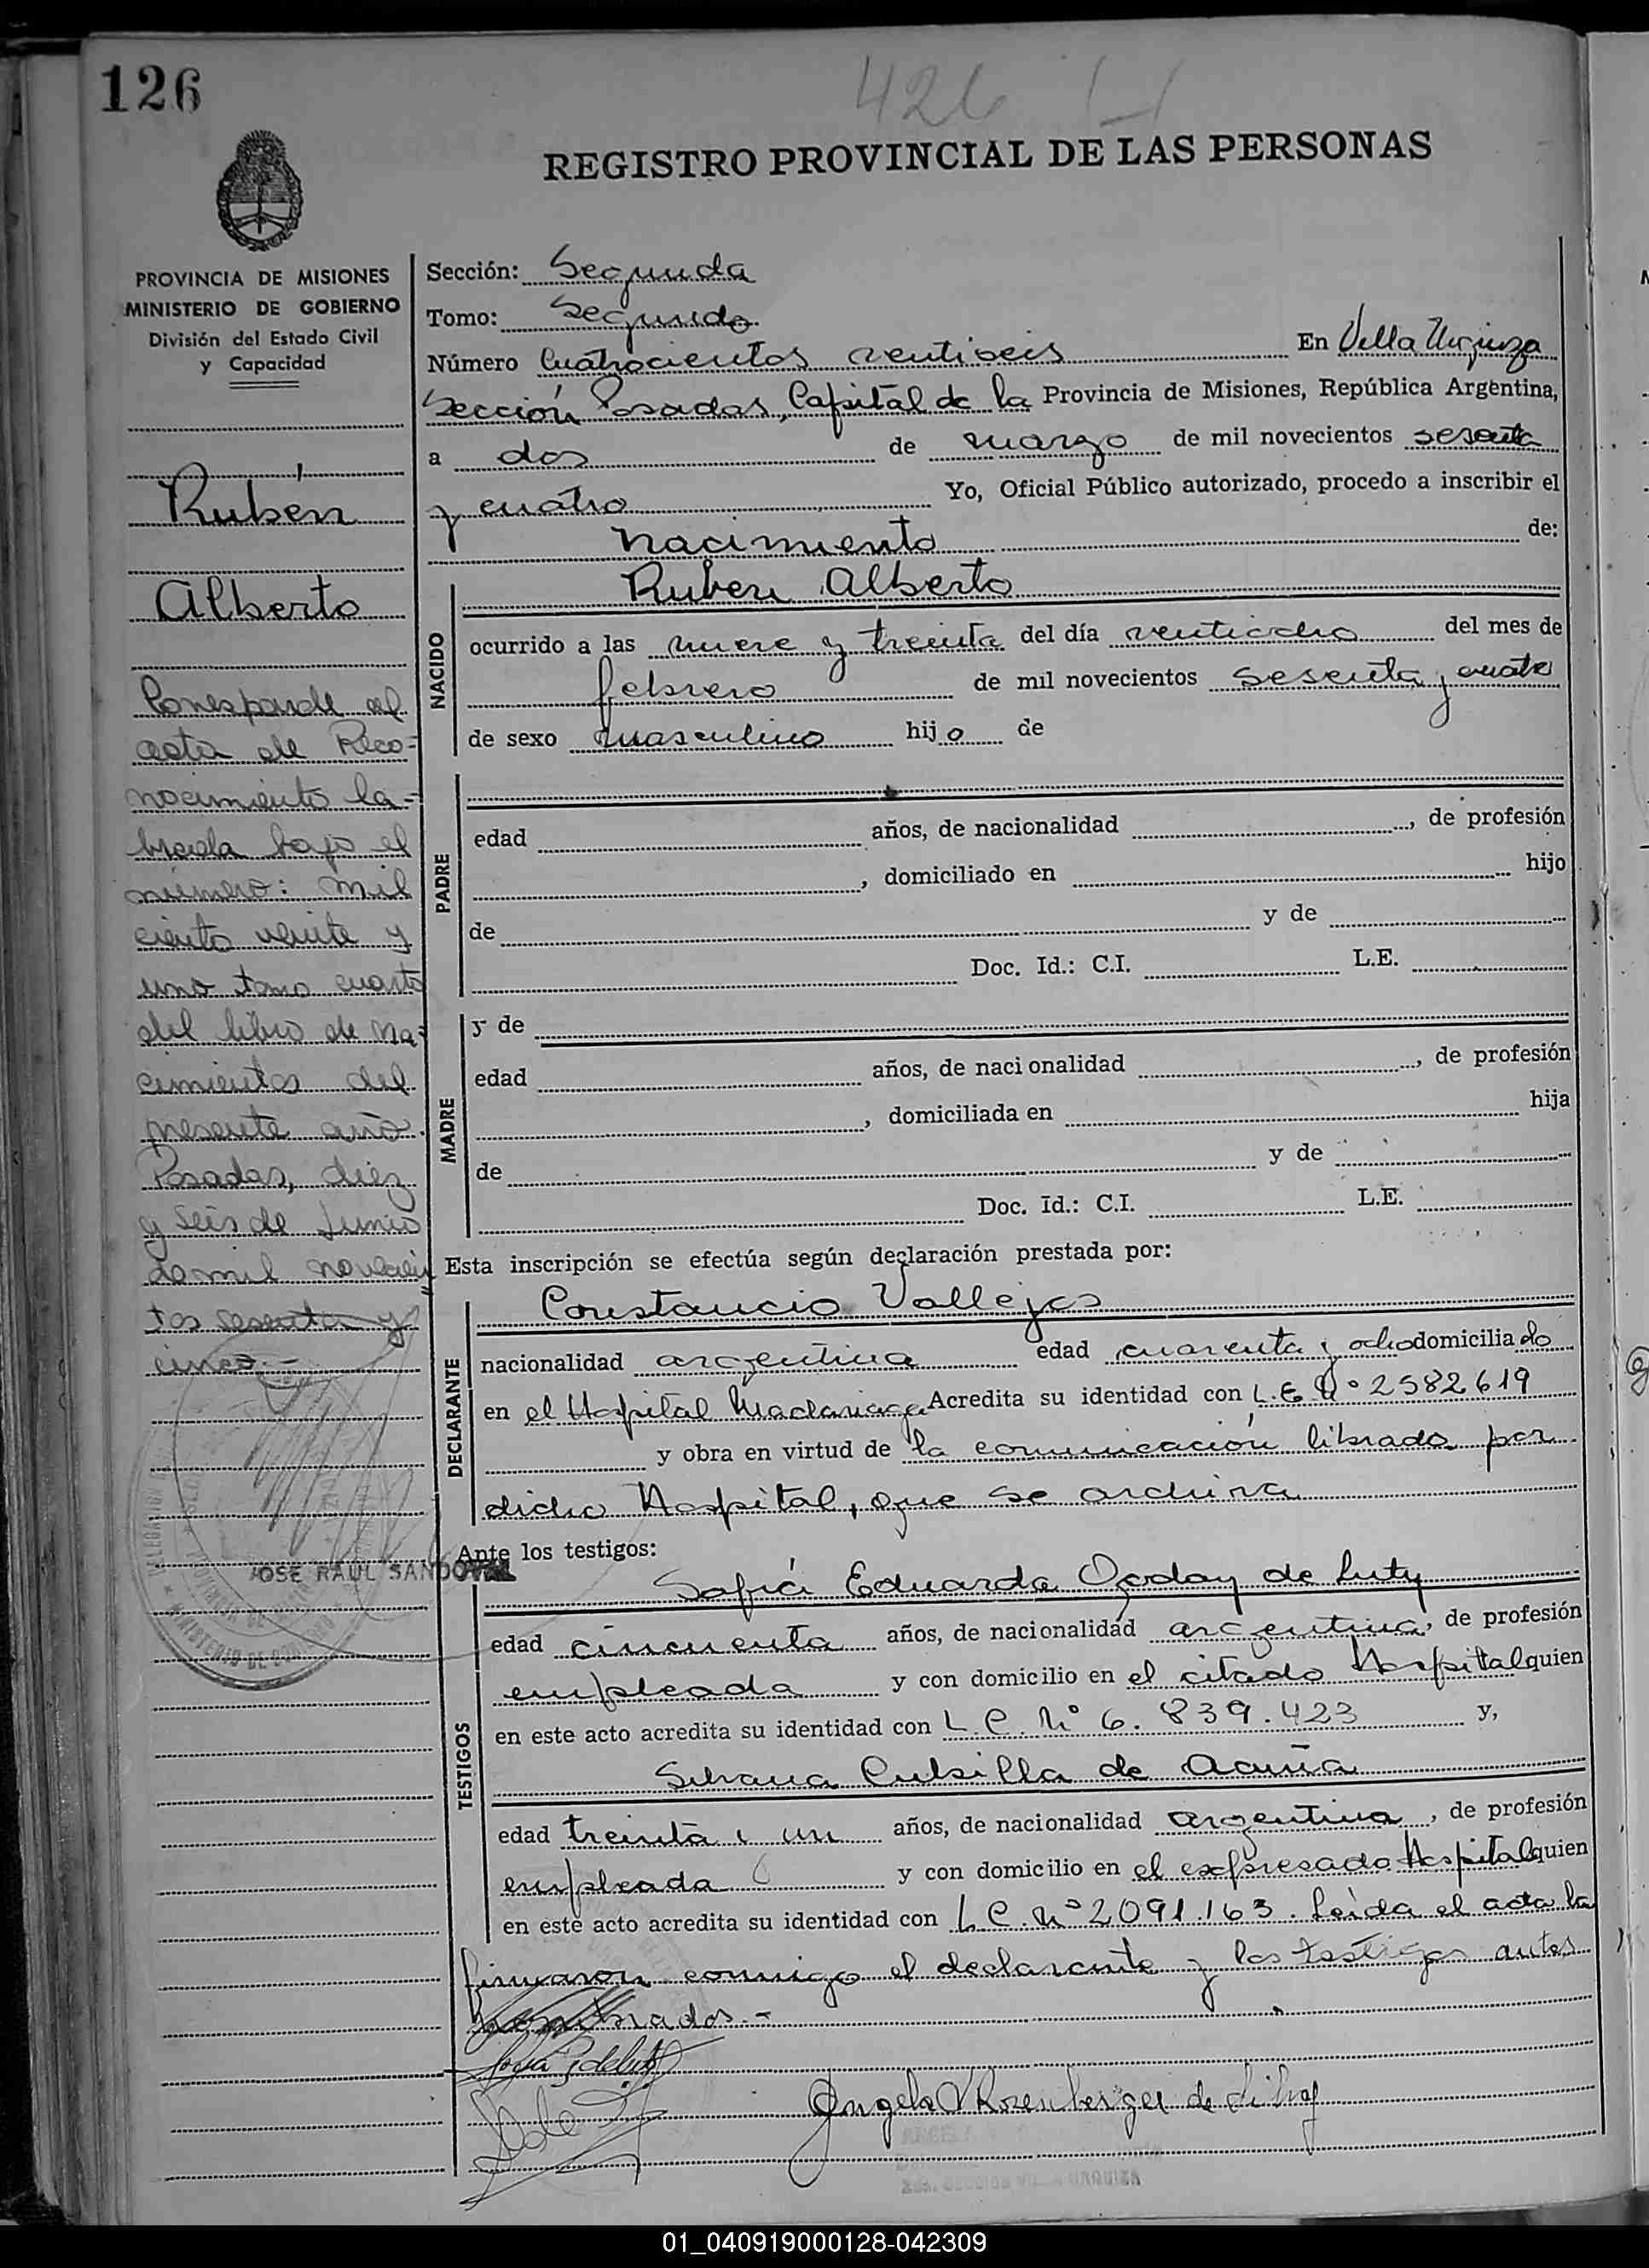 126
426
REGISTRO PROVINCIAL DE LAS PERSONAS
PROVINCIA DE MISIONES
MINISTERIO DE GOBIERNO
División del Estado Civil
y Capacidad
Rubén
Alberto
Corresponde al
acta de Reco-
nocimiento la-
brada bajo el
número: mil
ciento veinte y
uno tomo cuarto
del libro de Na-
cimientos del
presente año.
Posadas, diez
y seis de Junio
de mil novecien
tos sesenta y
cinco.-
JOSE RAUL SANDOVAL
MINISTERIO DE GOBIERNO
Sección: Segunda
Tomo: Segundo
Número Cuatrocientos veintiseis En Villa Urquiza
Sección Posadas, Capital de la Provincia de Misiones, República Argentina,
a dos de marzo de mil novecientos sesenta
y cuatro Yo, Oficial Público autorizado, procedo a inscribir el
nacimiento de:
NACIDO
Ruben Alberto
ocurrido a las nueve y treinta del día veintiocho del mes de
febrero de mil novecientos sesenta y cuatro
de sexo masculino hijo de
PADRE
edad años, de nacionalidad , de profesión
, domiciliado en hijo
de y de
Doc. Id.: C.I. L.E.
MADRE
y de
edad años, de nacionalidad , de profesión
, domiciliada en hija
de y de
Doc. Id.: C.I. L.E.
Esta inscripción se efectúa según declaración prestada por:
DECLARANTE
Constancio Vallejos
nacionalidad argentina edad cuarenta y ocho domiciliado
en el Hospital Madariaga Acredita su identidad con L.E Nº 2582619
y obra en virtud de la comunicación librada por
dicho Hospital, que se archiva
Ante los testigos:
TESTIGOS
Sofía Eduarda Godoy de Luty
edad cincuenta años, de nacionalidad argentina, de profesión
empleada y con domicilio en el citado Hospital quien
en este acto acredita su identidad con L.C. Nº 6.839.423 y,
Silvana Cubilla de Acuña
edad treinta y un años, de nacionalidad argentina, de profesión
empleada y con domicilio en el expresado Hospital quien
en este acto acredita su identidad con L.C. Nº 2.091.163. Leida el acta la
firmaron conmigo el declarante y los testigos antes
nombrados.-
Angela Rosenberger de
URQUIZA
01_040919000128-042309